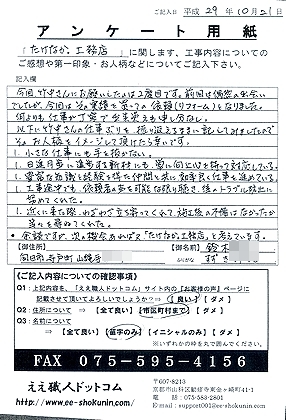 ご記入日 平成 29年 10月 21日
アンケート用紙
「たけなか工務店」に関します、工事内容についての
ご感想や第一印象・お人柄などについてご記入下さい。
記入欄
今回竹中さんにお願いしたのは2度目です。前回は偶然の出会い
でしたが、今回はその実績を買っての依頼(リフォーム)となりました。
何よりも仕事が丁寧で出来栄えも申し分なし。
以下に竹中さんの仕事ぶりを振り返るままに記してみましたので
そのお人柄をイメージして頂けたら幸いです。
1. 小さな仕事にも手を抜かない。
1. 日進月歩に進歩する新材にも、常に向上心を持って対応している。
1. 豊富な知識と経験を持った仲間と共に効率良く仕事を進めている。
1. 工事途中でも、依頼者の要望を可能な限り聴き、後のトラブル抜出に
努めてくれた。
1. 近くに来た際、わざわざ立ち寄ってくれて、施工後の不備はなかったか
等々を尋ねてくれた。
※ 余談ですが、次の機会があれば又「たけなか工務店」と考えています。
【御住所】
向日市寺戸町山縄手
【御名前】 鈴木
ふりがな すずき
〈ご記入内容についての確認事項〉
Q1:上記内容を、「ええ職人ドットコム」サイト内の「お客様の声」ページに
記載させて頂いてよろしいでしょうか?⇒ 【 良い 】 【 ダメ 】
Q2:住所について ⇒ 【全て良い】 【市区町村まで】 【 ダメ 】
Q3:名前について
⇒ 【全て良い】 【苗字のみ】 【イニシャルのみ】 【 ダメ 】
※いずれかの枠を丸で囲んでください。
FAX 075-595-4156
ええ職人ドットコム
http://www.ee-shokunin.com
〒607-8213
京都市山科区勧修寺東金ヶ崎町41-1
電話:075-583-2801
E-mail:support001@ee-shokunin.com